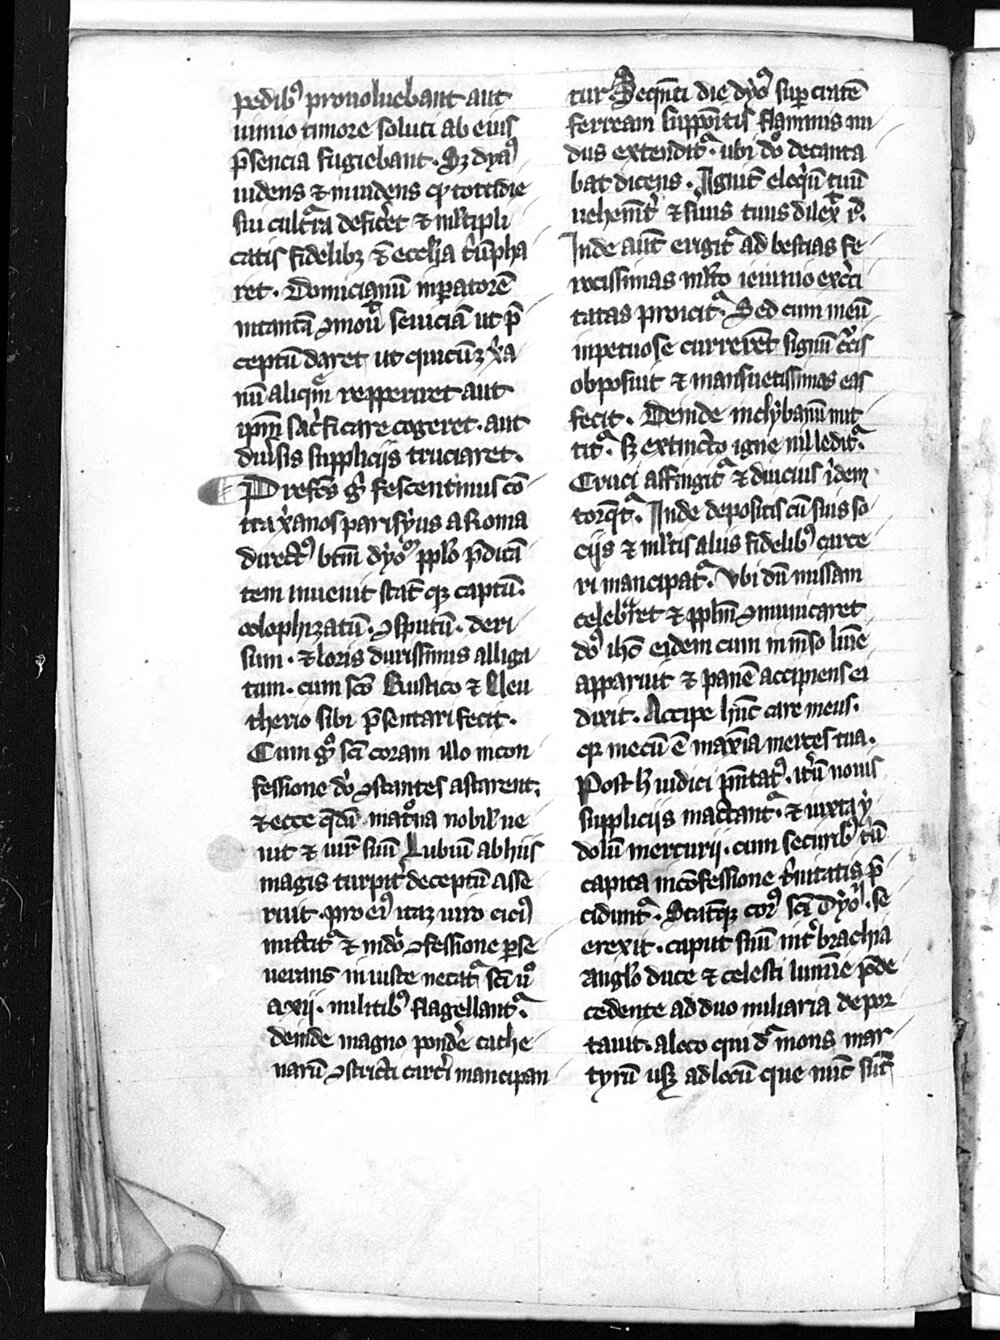 pedib9 prouoluebant aut
nimio timore soluti ab eius
p̄sencia fugiebant. Sꝫ dya9
uidens & inuidens ꝙ tottidie
sui cult9 deficeret & mltipli
catis fidelibꝫ & ecclia t'umpha
ret. Domicianū inp̄atorē
ī tantā ꝯmouit seuiciā ut p̄
ceptū daret ut quicūꝫ xp̄ia
nū aliquē repperiret aut
ip̄m sac'ficare cogeret. aut
diu'sis suppliciis truciaret.
Prefc̄s g° fescentinus cō
tra xp̄ianos parisyus a Roma
direct9 btm̄ dyo9 pplo p̄dicā
tem inuenit stat̄ qꝫ captū.
colophizatū. ꝯsputū. deri
sum. & loris durissimis alliga
tum. cum sc̄o Rustico & Eleu
therio sibi p̄sentari fecit.
Cum g° sc̄i coram illo in con
fessione d'i ꝯstantes astarent,
& ecce q̄dā mat°na nobil' ue
nit & uir̄ suū Lubiū ab hiis
magis turpit' deceptū asse
ruit. pro eius itaꝫ uiro cici9
mittit' & in d'i ꝯfessione p̄se
uerans iniuste necat' sc̄i u°
a xii. militib9 flagellant'.
deinde magno pond'e cathe
narū ꝯstricti carc'i mancipan
tur. Sequēti die dyo9 sup cratē
ferream suppoītis flammis nu
dus extendit'. ubi dō decanta
bat dicens. Ignitū eloq'ū tuū
uehemt' & seruus tuus dilex' id'.
Inde aut̄ erigit' ad bestias fe
rocissimas mlto ieiunio exc'i
tatas proicit'. Sed cum in eū
inpetuose currerēt signū c'cis
obposuit & mansuetissimas eas
fecit. Deinde in clybanū mit
tit'. sꝫ extincto igne nil ledit'.
Cruci affingit' & diucius ibidem
torq̄t'. Inde depositus cū suis so
ciis & mltis aliis fidelib9 carce
ri mancipat'. Vbi dū missam
celebraret & pplm̄ ꝯmunicaret
dō9 ihc̄ eidem cum inmēso lumīe
apparuit & panē accipiens ei
dixit. Accipe hūc care meus.
qr mecū ē maxīa merces tua.
Post h iudici p̄sētat9. it'ū nouis
suppliciis mactant'. & iuxta y
dolū mercurii. cum securib9 t'ū
capita in cōfessione t'nitatis p̄
cidunt'. Statimqꝫ corp9 sc̄i Dyo9. se
erexit. caput suū int' brachia
anglo duce & celesti lumīe p̄ce
cedente ad duo miliaria depor
tauit. a loco qui d' mons mar
tyrū usqꝫ ad locū que nūc sua